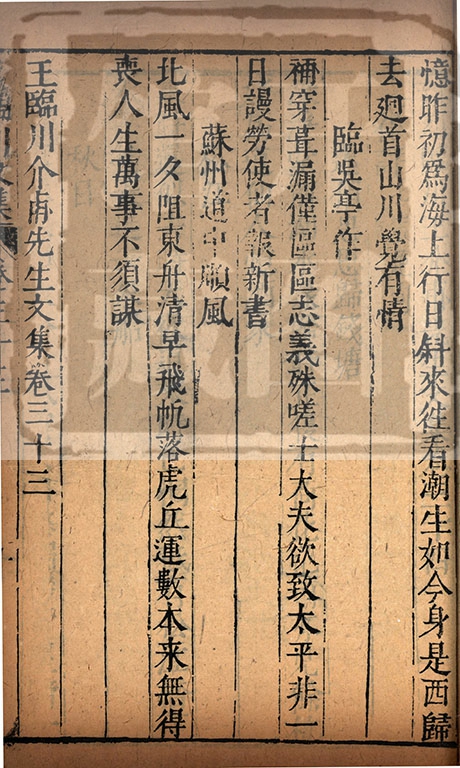 憶昨初爲海上行日斜來往看潮生如今身是西歸
去廻首山川覺有情
臨吳亭作
補穿葺漏僅區區志義殊嗟士大夫欲致太平非一
日謾勞使者報新書
蘇州道中順風
北風一夕阻東舟清早飛帆落虎丘運數本来無得
喪人生萬事不須謀
王臨川介甫先生文集卷三十三